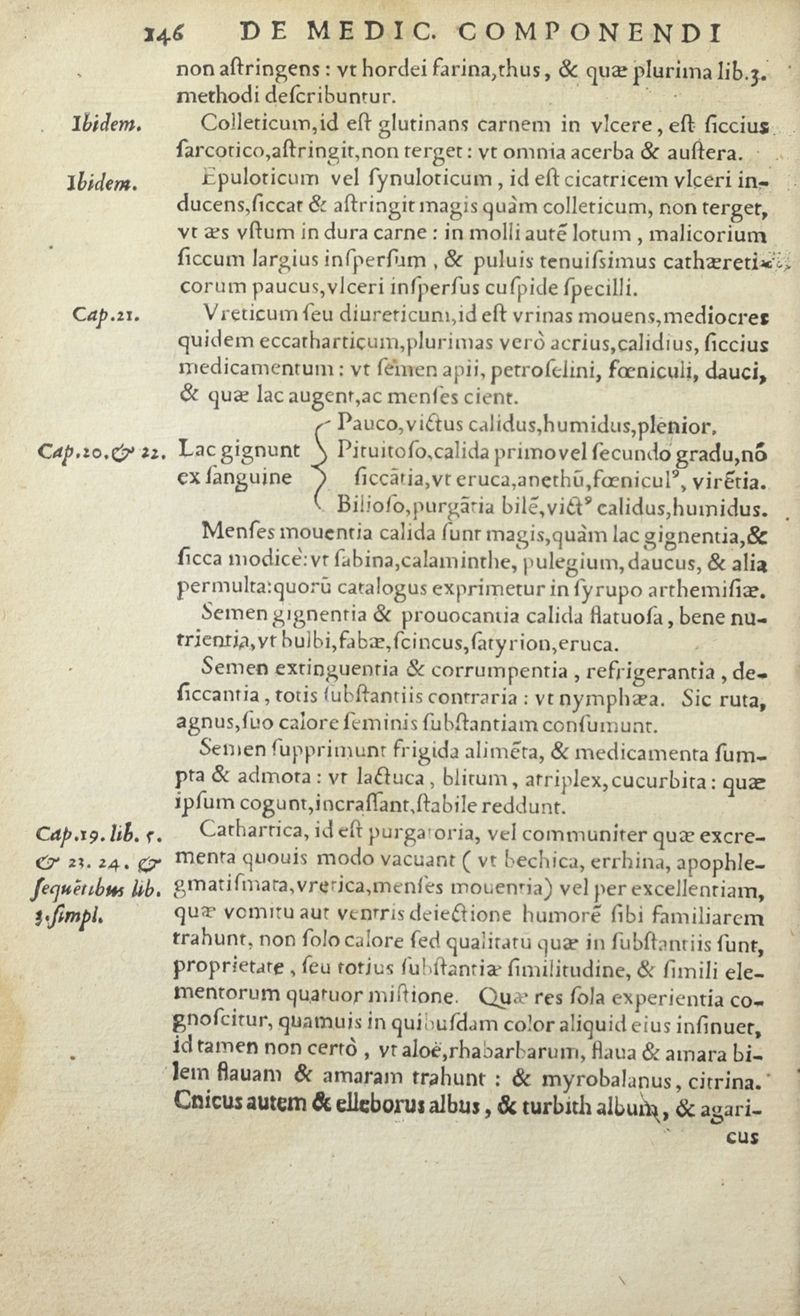 146 DE MEDIC. COMPONENDI
non aſtringens : vt hordei farina,thus, & quæ plurima lib.3.
methodi deſcribuntur.
Ibidem. Colleticum,id eſt glutinans carnem in vlcere, eſt ſiccius
ſarcotico,aſtringit,non terget : vt omnia acerba & auſtera.
Ibidem. Epuloticum vel ſynuloticum , id eſt cicatricem vlceri in-
ducens,ſiccat & aſtringit magis quàm colleticum, non terget,
vt æs vſtum in dura carne : in molli autē lotum , malicorium
ſiccum largius inſperſum , & puluis tenuiſsimus cathæreti-
corum paucus,vlceri inſperſus cuſpide ſpecilli.
Cap.21. Vreticum ſeu diureticum,id eſt vrinas mouens,mediocres
quidem eccatharticum,plurimas verò acrius,calidius, ſiccius
medicamentum : vt ſemen apii, petroſelini, fœniculi, dauci,
& quæ lac augent,ac menſes cient.
Pauco,victus calidus,humidus,plenior.
Cap.20.& 22. Lac gignunt Pituitoſo,calida primo vel ſecundo gradu,nō
ex ſanguine ſiccātia,vt eruca,anethū,fœnicul⁹, virētia.
Bilioſo,purgātia bilē,vict⁹ calidus,humidus.
Menſes mouentia calida ſunt magis,quàm lac gignentia,&
ſicca modicè:vt ſabina,calaminthe, pulegium, daucus, & alia
permulta:quorū catalogus exprimetur in ſyrupo arthemiſiæ.
Semen gignentia & prouocantia calida flatuoſa , bene nu-
trientia,vt bulbi,fabæ,ſcincus,ſatyrion,eruca.
Semen extinguentia & corrumpentia , refrigerantia , de-
ſiccantia , totis ſubſtantiis contraria : vt nymphæa. Sic ruta,
agnus,ſuo calore ſeminis ſubſtantiam conſumunt.
Semen ſupprimunt frigida alimēta, & medicamenta ſum-
pta & admota : vt lactuca , blitum , atriplex,cucurbita : quæ
ipſum cogunt,incraſſant,ſtabile reddunt.
Cap.19. lib. 5. Cathartica, id eſt purgatoria, vel communiter quæ excre-
& 23. 24. & menta quouis modo vacuant ( vt bechica, errhina, apophle-
ſequētibus lib. gmatiſmata,vretica,menſes mouentia) vel per excellentiam,
3.ſimpl. quæ vomitu aut ventris deiectione humorē ſibi familiarem
trahunt, non ſolo calore ſed qualitatu quæ in ſubſtantiis ſunt,
proprietate , ſeu totius ſubſtantiæ ſimilitudine, & ſimili ele-
mentorum quatuor miſtione. Quæ res ſola experientia co-
gnoſcitur, quamuis in quibuſdam color aliquid eius inſinuet,
id tamen non certò , vt aloë,rhabarbarum, flaua & amara bi-
lem flauam & amaram trahunt : & myrobalanus, citrina.
Cnicus autem & elleborus albus , & turbith album, & agari-
cus